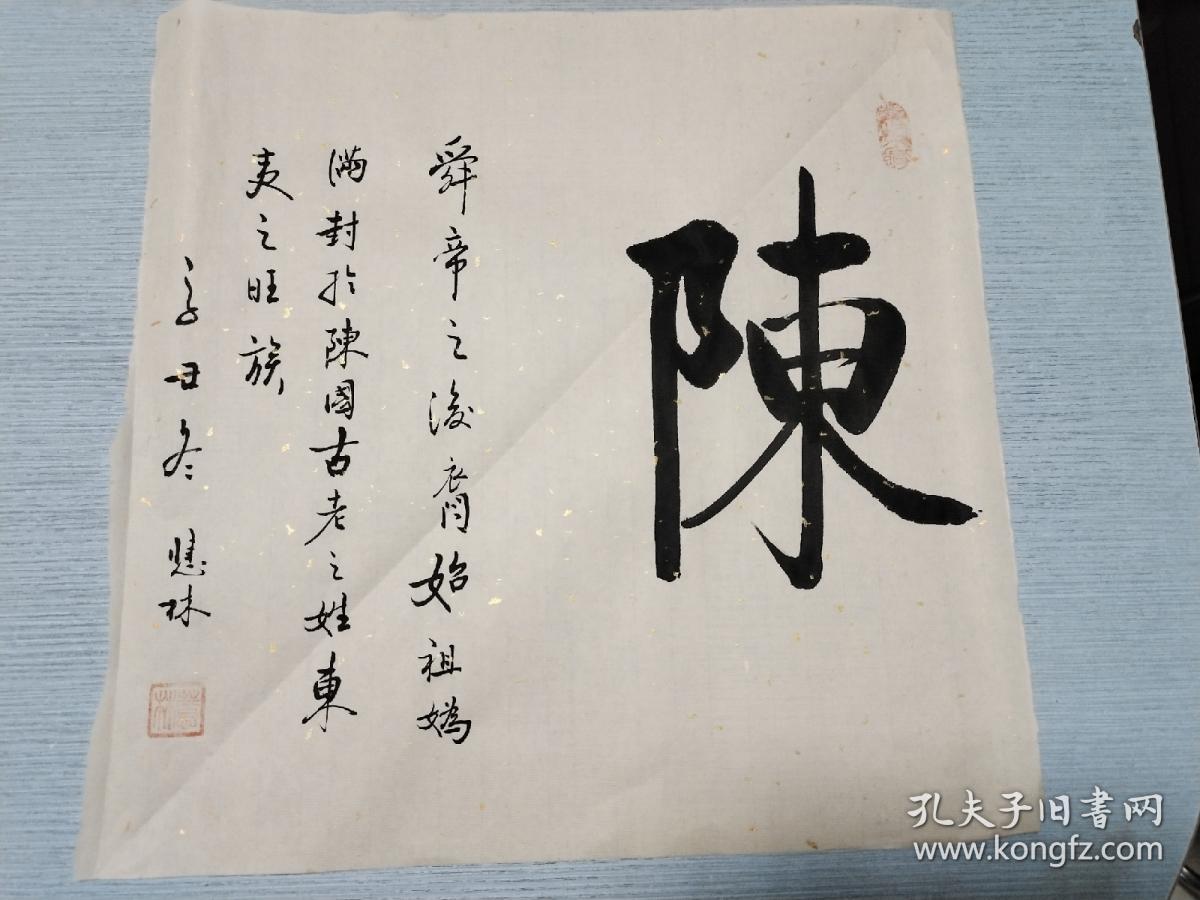 陳
舜帝之後裔始祖媯
滿封於陳國古老之姓東
夷之旺族
辛丑冬 慧林
孔夫子旧书网
www.kongfz.com